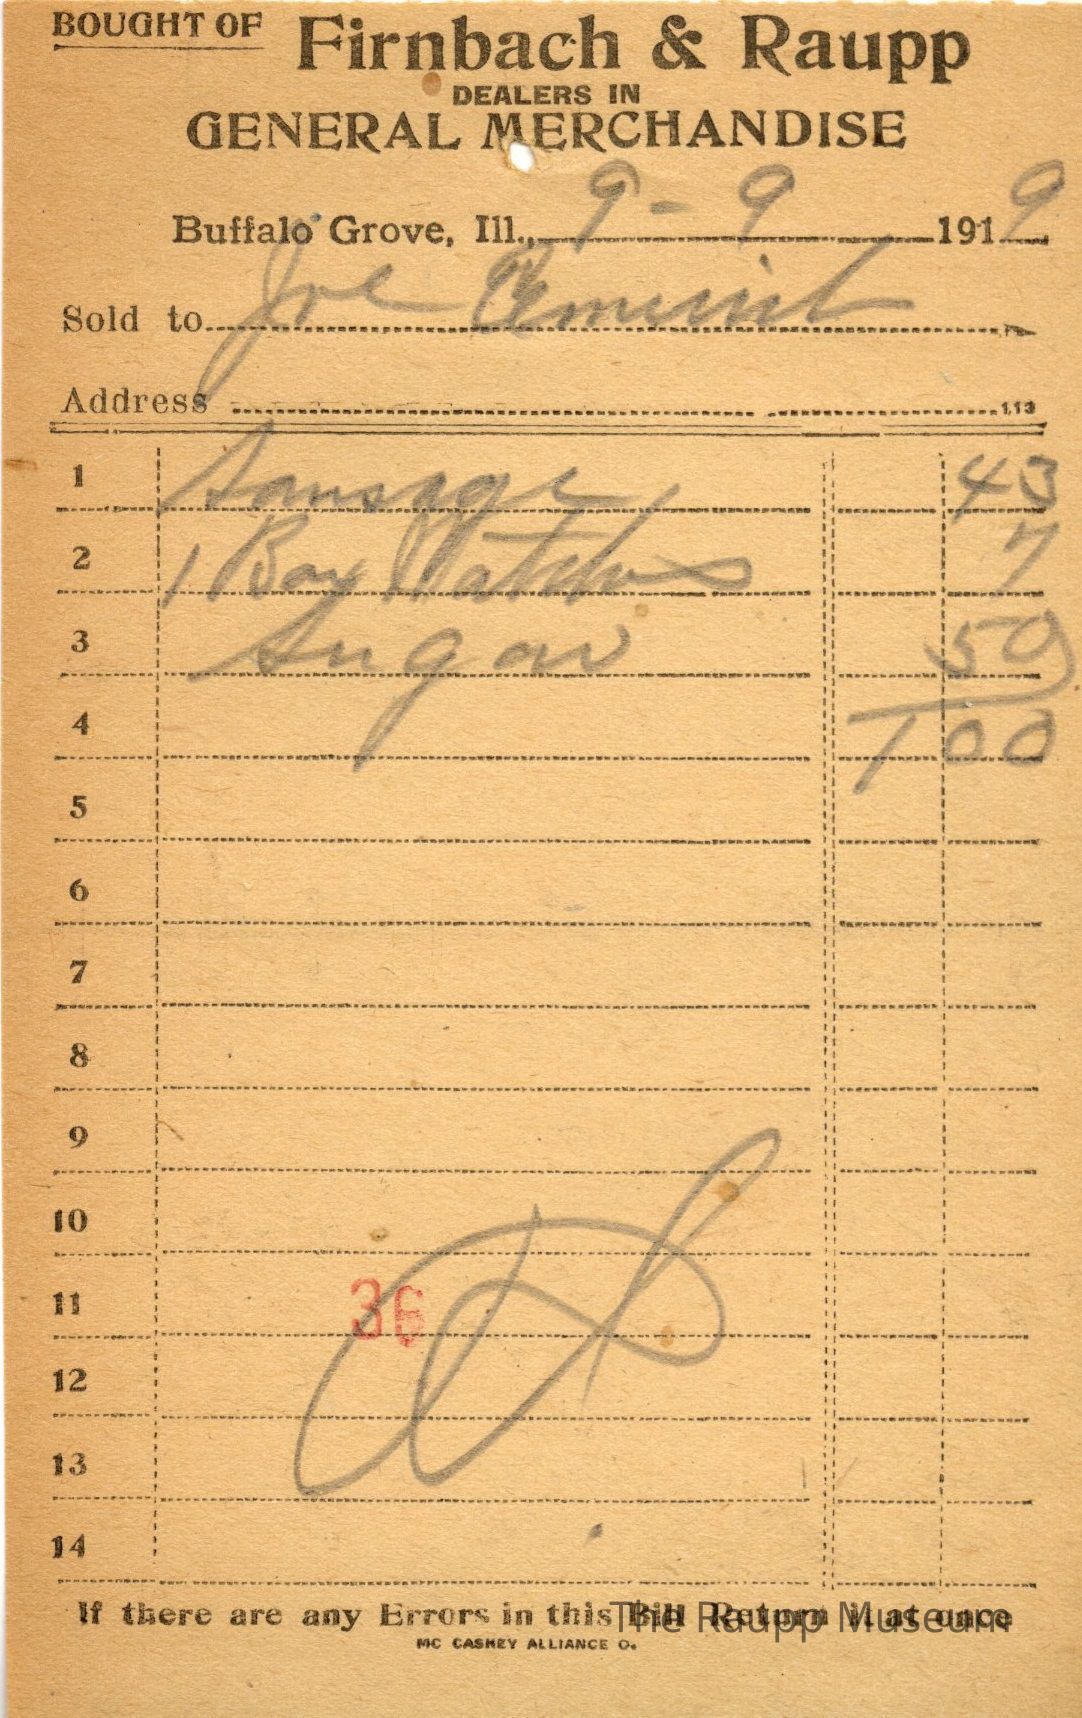 BOUGHT OF Firnbach & Raupp
DEALERS IN
GENERAL MERCHANDISE
Buffalo Grove, Ill., 9 - 9 1919
Sold to Joe
Address 113
1 Sausage 43
2 1 Box Matches 7
3 Sugar 50
4 1 00
5
6
7
8
9
10
11 36
12
13
14
If there are any Errors in this Bill Return it at once
The Raupp Museum
MC CASKEY ALLIANCE O.